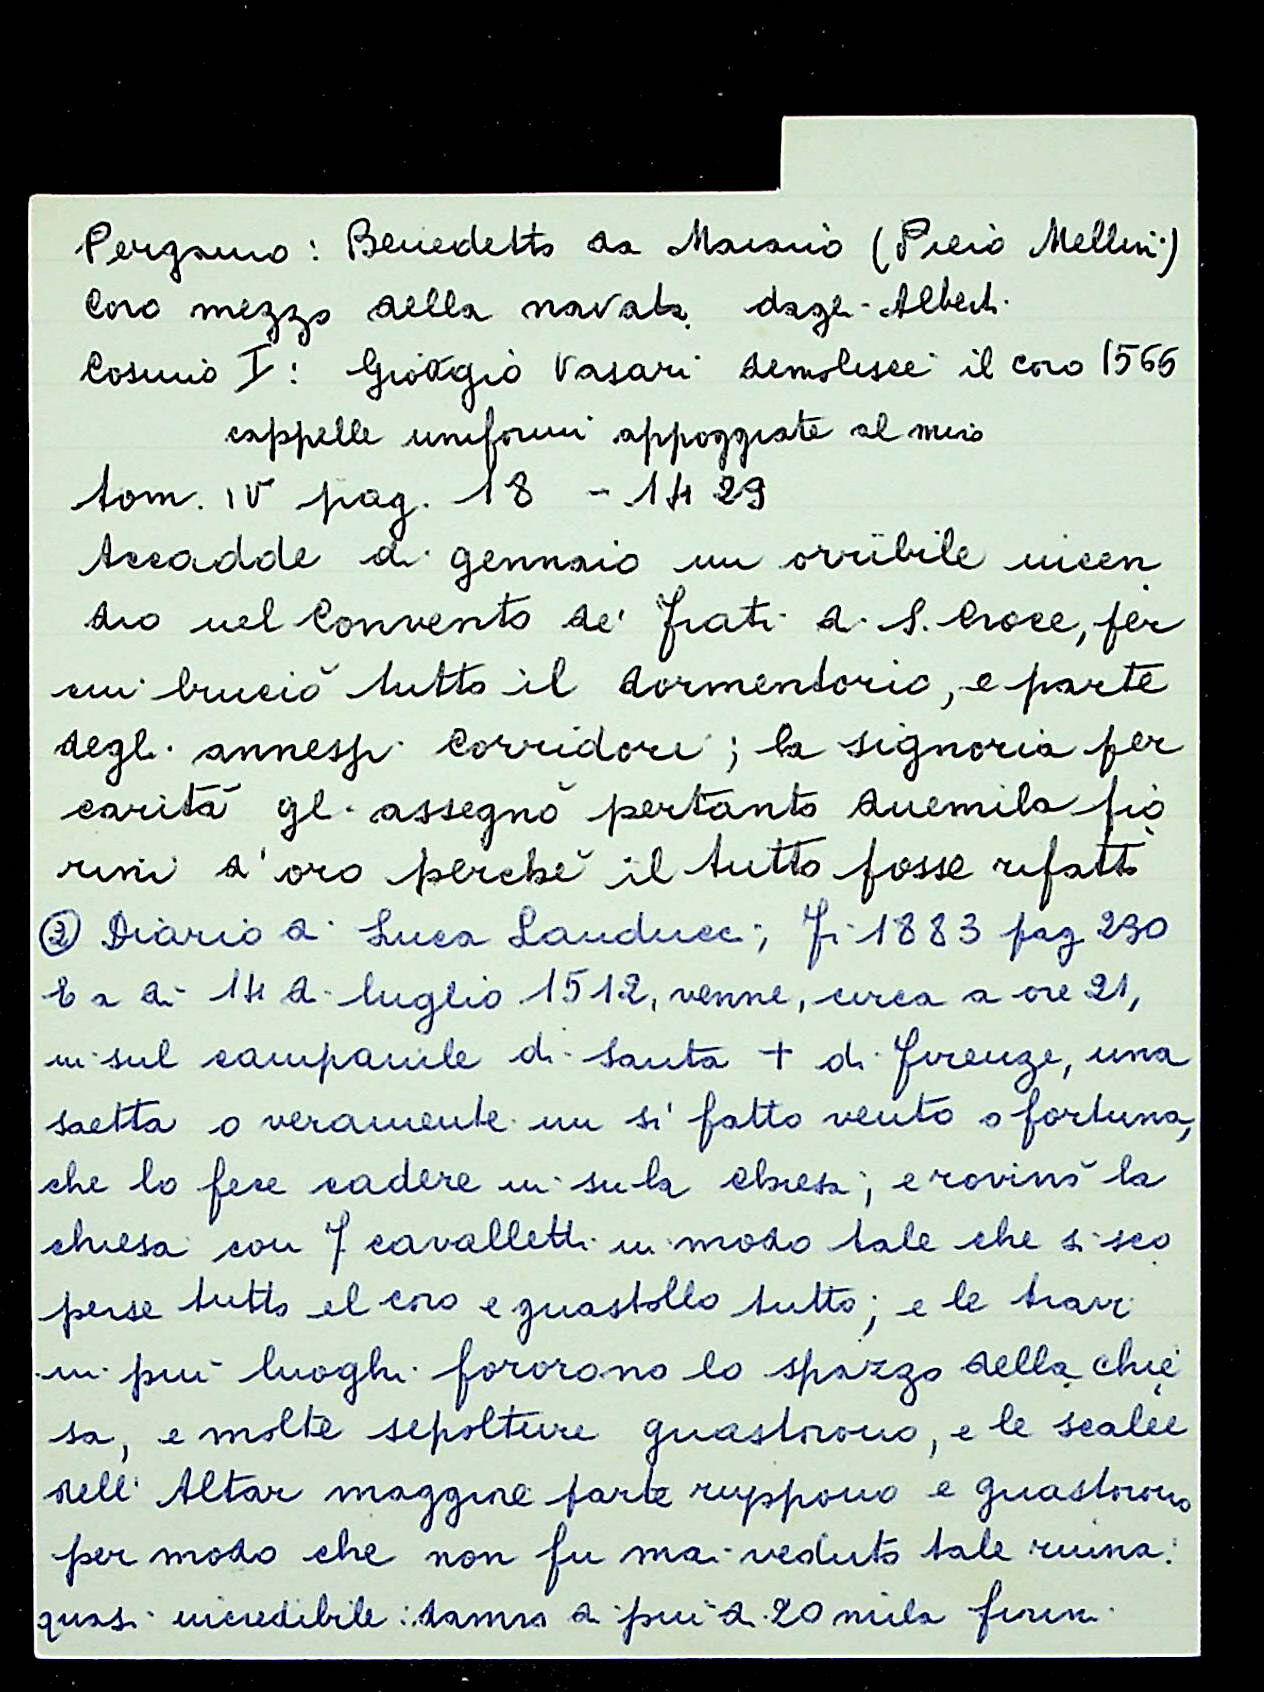 Pergamo: Benedetto da Maiano (Piero Mellini)
Coro mezzo della navata dagli Alberti
Cosimo I: Giorgio Vasari demolisce il coro 1566
cappelle uniformi appoggiate al muro
tom. IV pag. 18 - 1429
Accadde di gennaio un orribile incen
dio nel Convento de' Frati di S. Croce, per
cui bruciò tutto il dormentorio, e parte
degli annessi corridori; la signoria per
carità gli assegnò pertanto duemila fio
rini d'oro perché il tutto fosse rifatto
② Diario di Luca Landucci; Fi 1883 pag 290
E a dì 14 di luglio 1512, venne, circa a ore 21,
in sul campanile di Santa + di Firenze, una
saetta o veramente un sì fatto vento o fortuna,
che lo fece cadere in su la chiesa; e rovinò la
chiesa con 7 cavalletti in modo tale che si sco
perse tutto el coro e guastollo tutto; e le travi
in più luoghi fororono lo spazzo della chie
sa, e molte sepolture guastorono, e le scalee
dell' Altar maggiore parte ruppono e guastorono
per modo che non fu mai veduto tale ruina:
quasi incredibile: danno di più di 20 mila fiorini